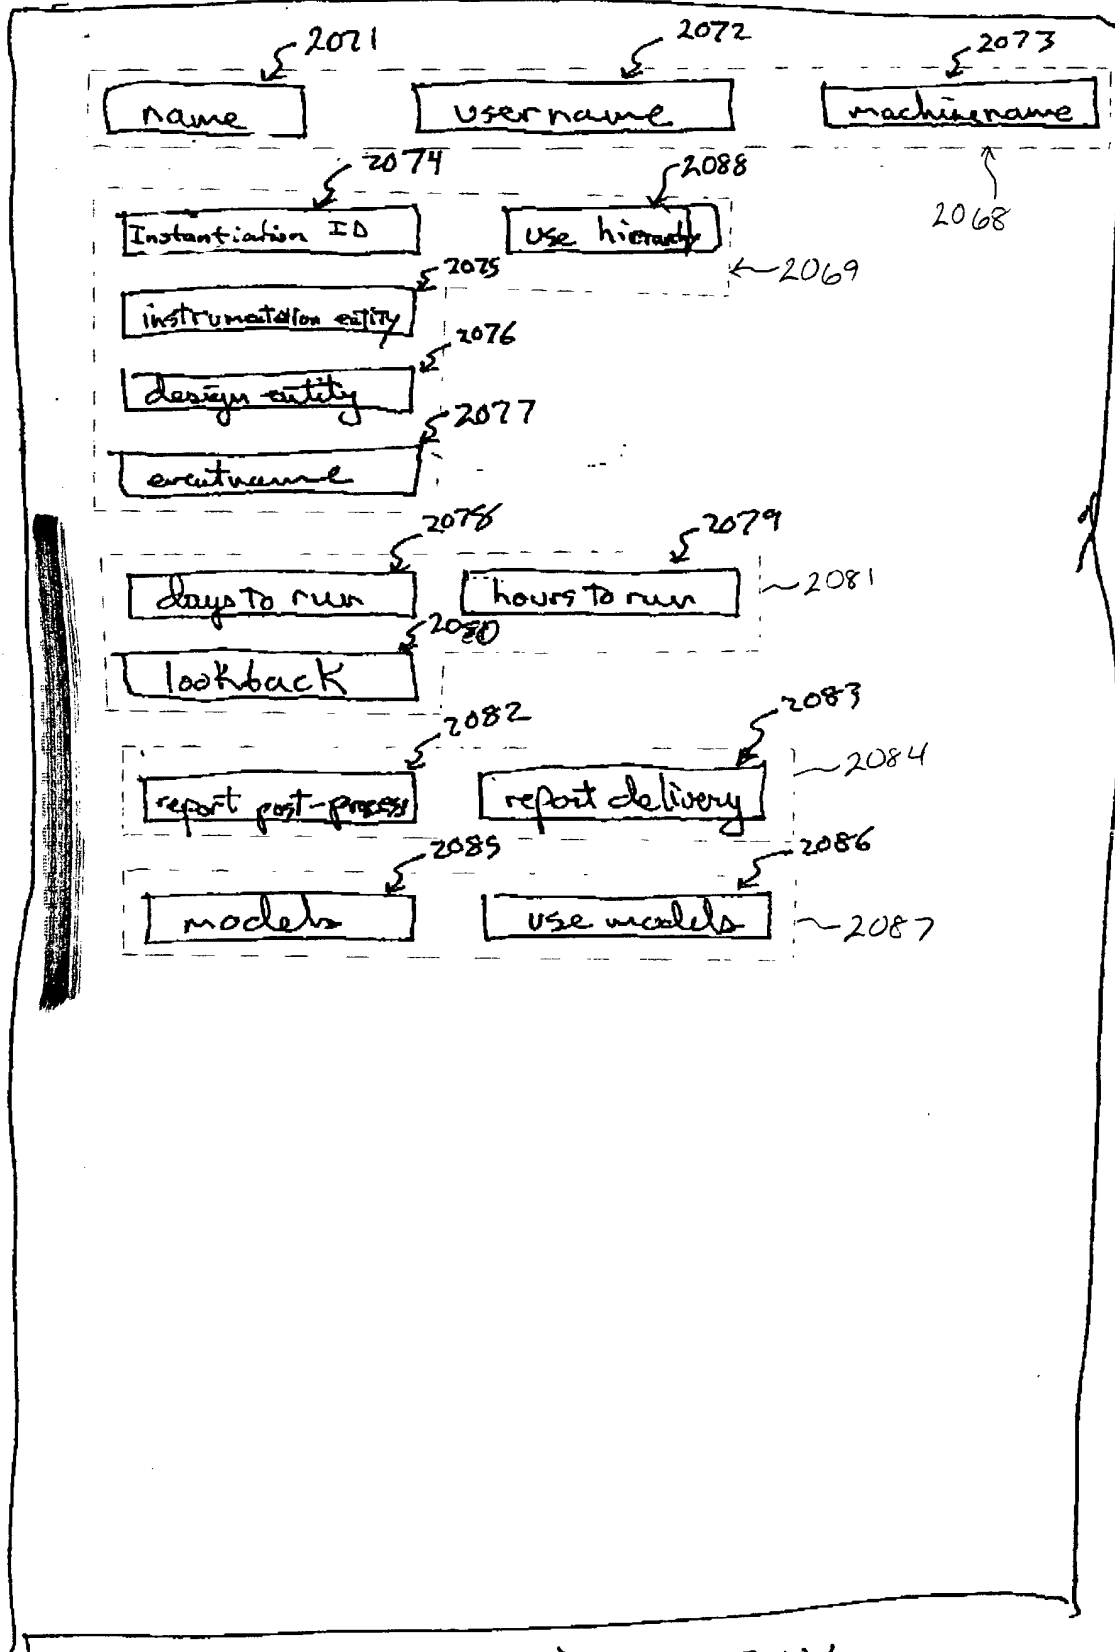 2071 2072 2073
name username machinename
2074 2088
2068
Instantiation ID use hierarchy
2075 2069
instrumentation entity
2076
design entity
2077
eventname
2078 2079
days to run hours to run 2081
2080
lookback
2082 2083
2084
report post-process report delivery
2085 2086
models use models 2087